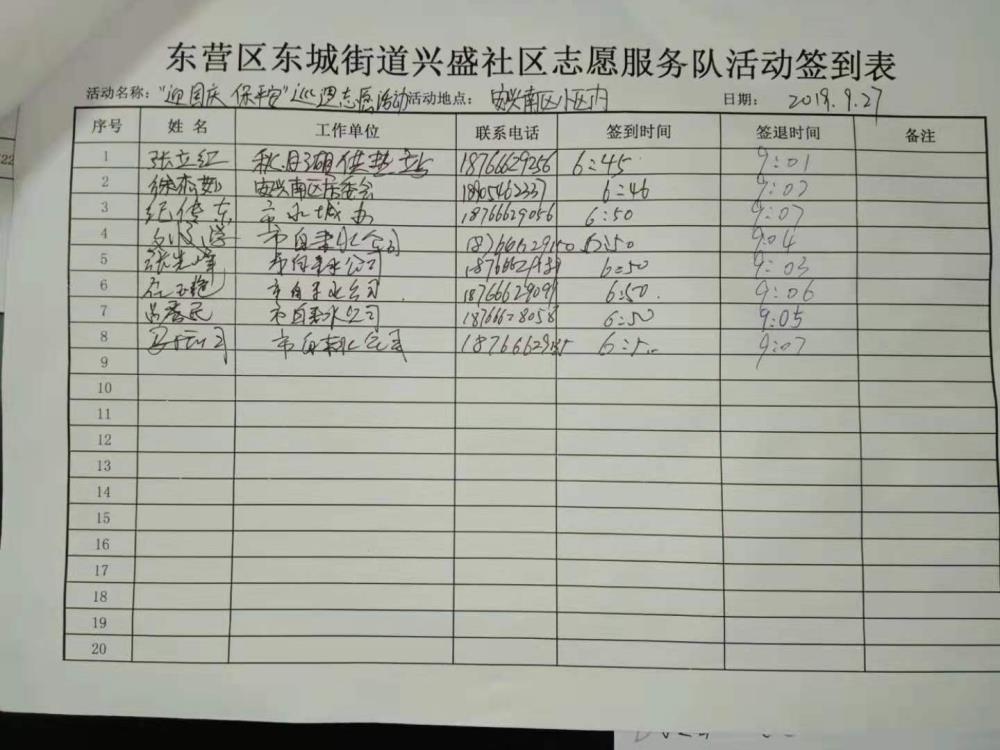 东营区东城街道兴盛社区志愿服务队活动签到表
活动名称："迎国庆 保平安"巡逻志愿活动 活动地点： 安兴南区小区内 日期： 2019.9.27
序号 姓名 工作单位 联系电话 签到时间 签退时间 备注
1 张立红 秋月湖供热站 18766629256 6:45 9:01
2 安兴南区居委会 18905462337 6:46 9:02
3 纪传东 18766629056 6:50 9:07
4 市自来水公司 6:50 9:04
5 张先峰 市自来水公司 6:50 9:03
6 市自来水公司 18766629099 6:50 9:06
7 吕秀民 市自来水公司 18766628058 6:50 9:05
8 市自来水公司 9:07
9
10
11
12
13
14
15
16
17
18
19
20